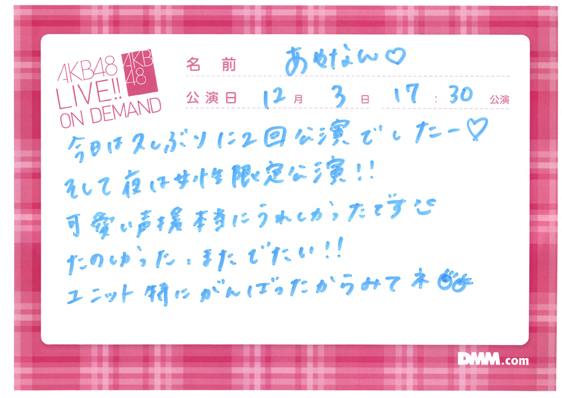 AKB48
LIVE!!
ON DEMAND
AKB
48
名前 あやなん♡
公演日 12月 3日 17:30 公演
今日は久しぶりに2回公演でしたー♡
そして夜は女性限定公演!!
可愛い声援本当にうれしかったです
たのしかった、またでたい!!
ユニット特にがんばったからみてネ
DMM.com